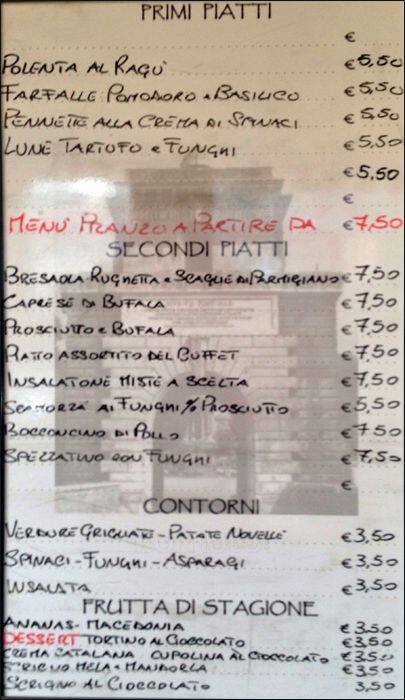 PRIMI PIATTI
€
POLENTA AL RAGÙ €5,50
FARFALLE POMODORO e BASILICO €5,50
PENNETTE ALLA CREMA DI SPINACI €5,50
LUNE TARTUFO e FUNGHI €5,50
€5,50
€
MENÙ PRANZO A PARTIRE DA €7,50
SECONDI PIATTI
BRESAOLA RUGHETTA e SCAGLIE DI PARMIGIANO €7,50
CAPRESE DI BUFALA €7,50
PROSCIUTTO e BUFALA €7,50
PIATTO ASSORTITO DEL BUFFET €7,50
INSALATONE MISTE A SCELTA €7,50
SCAMORZA AI FUNGHI % PROSCIUTTO €5,50
BOCCONCINO DI POLLO €7,50
SPEZZATINO CON FUNGHI €7,50
€
CONTORNI
VERDURE GRIGLIATE - PATATE NOVELLE €3,50
SPINACI - FUNGHI - ASPARAGI €3,50
INSALATA €3,50
FRUTTA DI STAGIONE
ANANAS - MACEDONIA €3,50
DESSERT TORTINO AL CIOCCOLATO €3,50
CREMA CATALANA - CUPOLINA AL CIOCCOLATO €3,50
SCRIGNO MELA e MANDORLA €3,50
SCRIGNO AL CIOCCOLATO 3,50